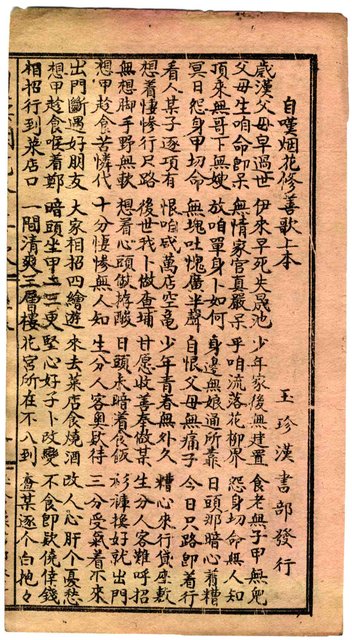 自嘆烟花修善歌上本
玉珍漢書部發行
歲漢父母早過世 伊來早死失晟池 少年家後無建置 食老無子甲無兒
父母生咱命即呆 無情家官真嚴呆 乎咱流落花柳界 怨身切命無人知
頂來無哥下無嫂 放咱單身卜如何 身邊無娘通所靠 日頭那暗心着糟
冥日怨身甲切命 無塊吐愧廣半聲 自恨父母無痛子 今日只路即着行
看人某子逐項有 恨咱威萬店空龜 少年青春無外久 糟心來行貸座敷
想着悽慘行尺路 後世我卜做查埔 甘愿改善奉做某 生分人客難呼招
無想脚手野無軟 想着心頭酸 日頭未暗着食飯 衫褲換好就出門
想甲趁食苦憐代 十分悽慘無人知 生分人客奧款待 三分受氣着不來
出門斷遇好朋友 大家相招四繪遊 來去菜店食燒酒 改人心肝个憂愁
想甲趁食着鄭 暗頭坐甲二三更 堅心好子卜改變 不食即款僥倖錢
相招行到菜店口 一間清爽三層樓 花宮所在不八到 查某逐个白抱々